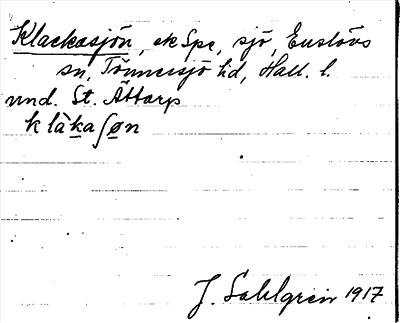 Klackasjön, ek Spe, sjö, Enslövs
sn, Tönnersjö hd, Hall. l.
und. St. Attarp
klàka ʃøn
J. Sahlgren 1917